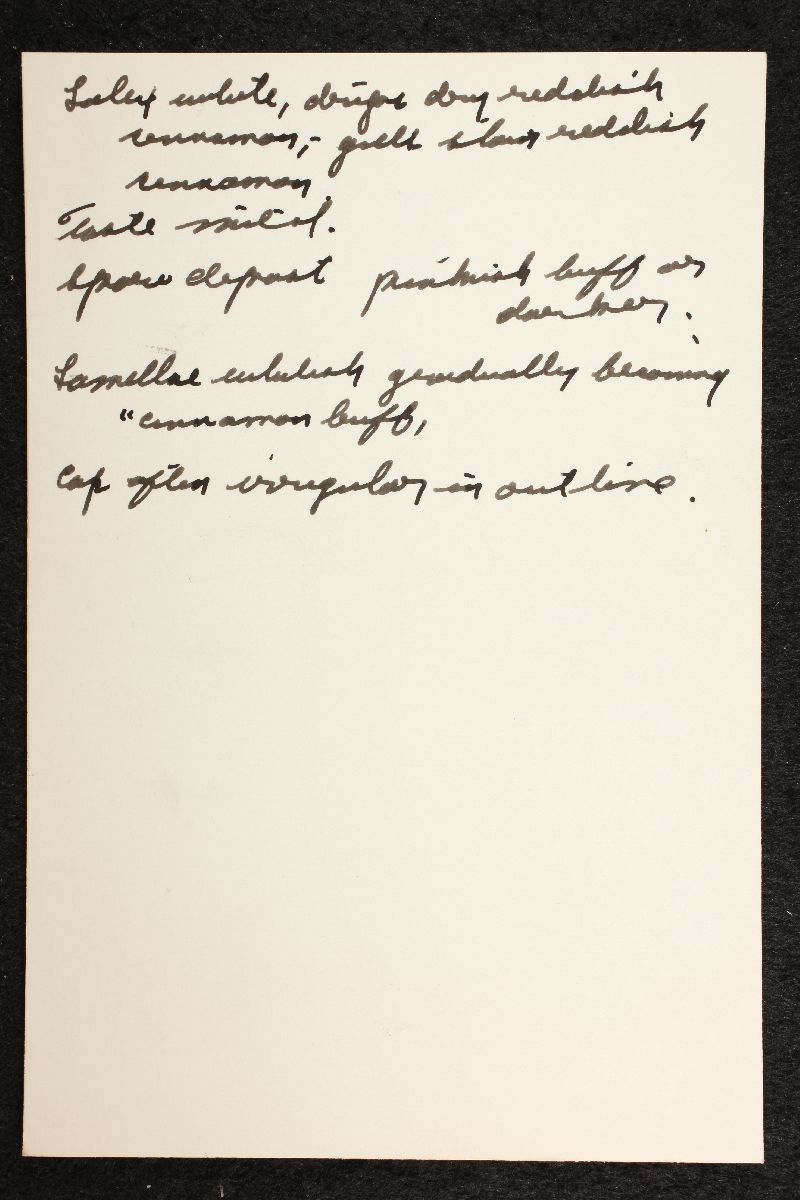 Latex white, drops dry reddish
cinnamon,- gills stain reddish
cinnamon
Taste mild.
Spore deposit pinkish buff or
darker.
Lamellae whitish gradually becoming
"cinnamon buff,
Cap often irregular in outline.